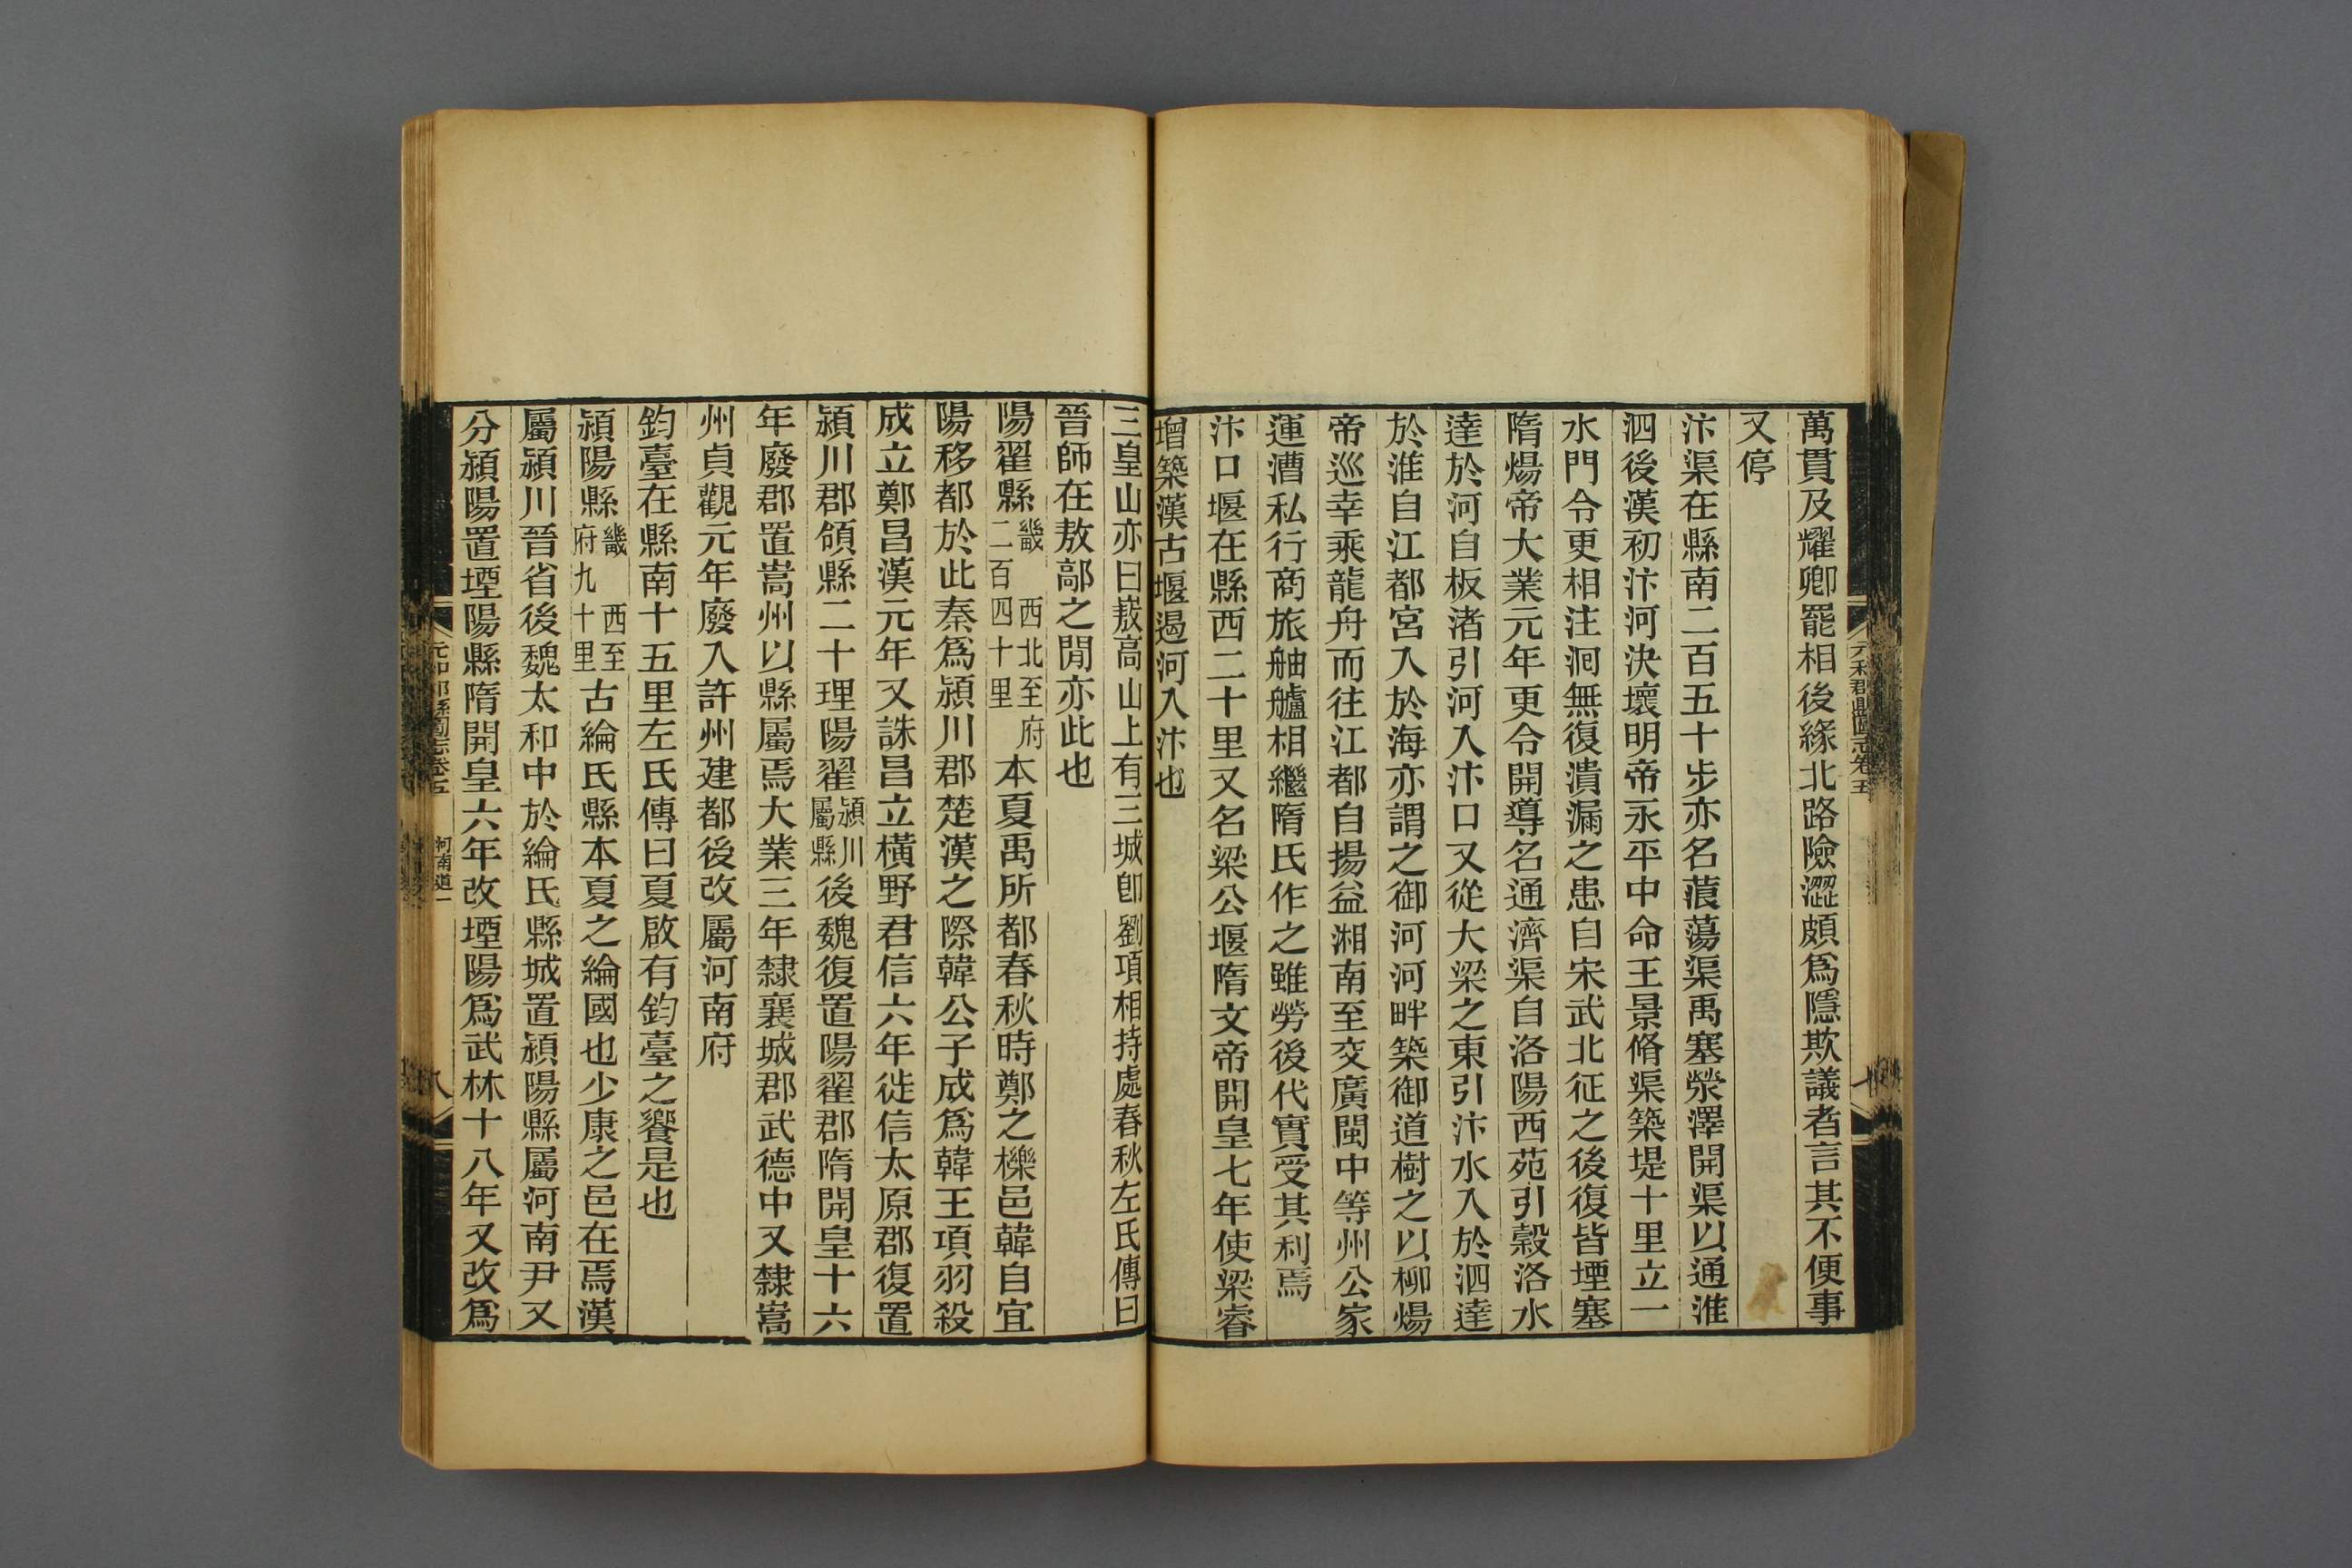 萬貫及耀卿罷相後緣北路險澀頗爲隱欺議者言其不便事
又停
汴渠在縣南二百五十步亦名蒗蕩渠禹塞滎澤開渠以通淮
泗後漢初汴河決壞明帝永平中命王景脩渠築堤十里立一
水門令更相注洄無復潰漏之患自宋武北征之後復皆堙塞
隋煬帝大業元年更令開導名通濟渠自洛陽西苑引穀洛水
達於河自板渚引河入汴口又從大梁之東引汴水入於泗達
於淮自江都宮入於海亦謂之御河河畔築御道樹之以柳煬
帝巡幸乘龍舟而往江都自揚益湘南至交廣閩中等州公家
運漕私行商旅舳艫相繼隋氏作之雖勞後代實受其利焉
汴口堰在縣西二十里又名梁公堰隋文帝開皇七年使梁睿
增築漢古堰遏河入汴也
元和郡縣圖志卷五
三皇山亦曰敖高山上有三城卽劉項相持處春秋左氏傳曰
晉師在敖鄗之閒亦此也
陽翟縣畿 西北至府二百四十里本夏禹所都春秋時鄭之櫟邑韓自宜
陽移都於此秦爲潁川郡楚漢之際韓公子成爲韓王項羽殺
成立鄭昌漢元年又誅昌立橫野君信六年徙信太原郡復置
潁川郡領縣二十理陽翟潁川屬縣後魏復置陽翟郡隋開皇十六
年廢郡置嵩州以縣屬焉大業三年隸襄城郡武德中又隸嵩
州貞觀元年廢入許州建都後改屬河南府
鈞臺在縣南十五里左氏傳曰夏啟有鈞臺之饗是也
潁陽縣畿 西至府九十里古綸氏縣本夏之綸國也少康之邑在焉漢
屬潁川晉省後魏太和中於綸氏縣城置潁陽縣屬河南尹又
分潁陽置堙陽縣隋開皇六年改堙陽爲武林十八年又改爲
元和郡縣圖志卷五 河南道一 八